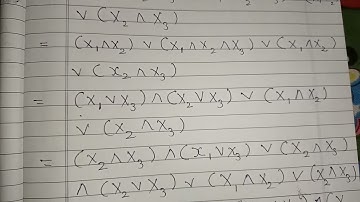 ∨ (X₂ ∧ X₃)
= (X₁∧X₂) ∨ (X₁∧X₂∧X₃) ∨ (X₁∧X₂)
∨ (x₂∧x₃)
= (X₁∨X₃)∧(X₂∨X₃) ∨ (X₁∧X₂)
∨ (X₂∧X₃)
= (X₂∧X₃) ∧(x₁∨x₃) ∨ (X₂∧X₃)
∧ (X₂∨X₃) ∨ (X₁∧X₂) ∨(X₂∧X₃)